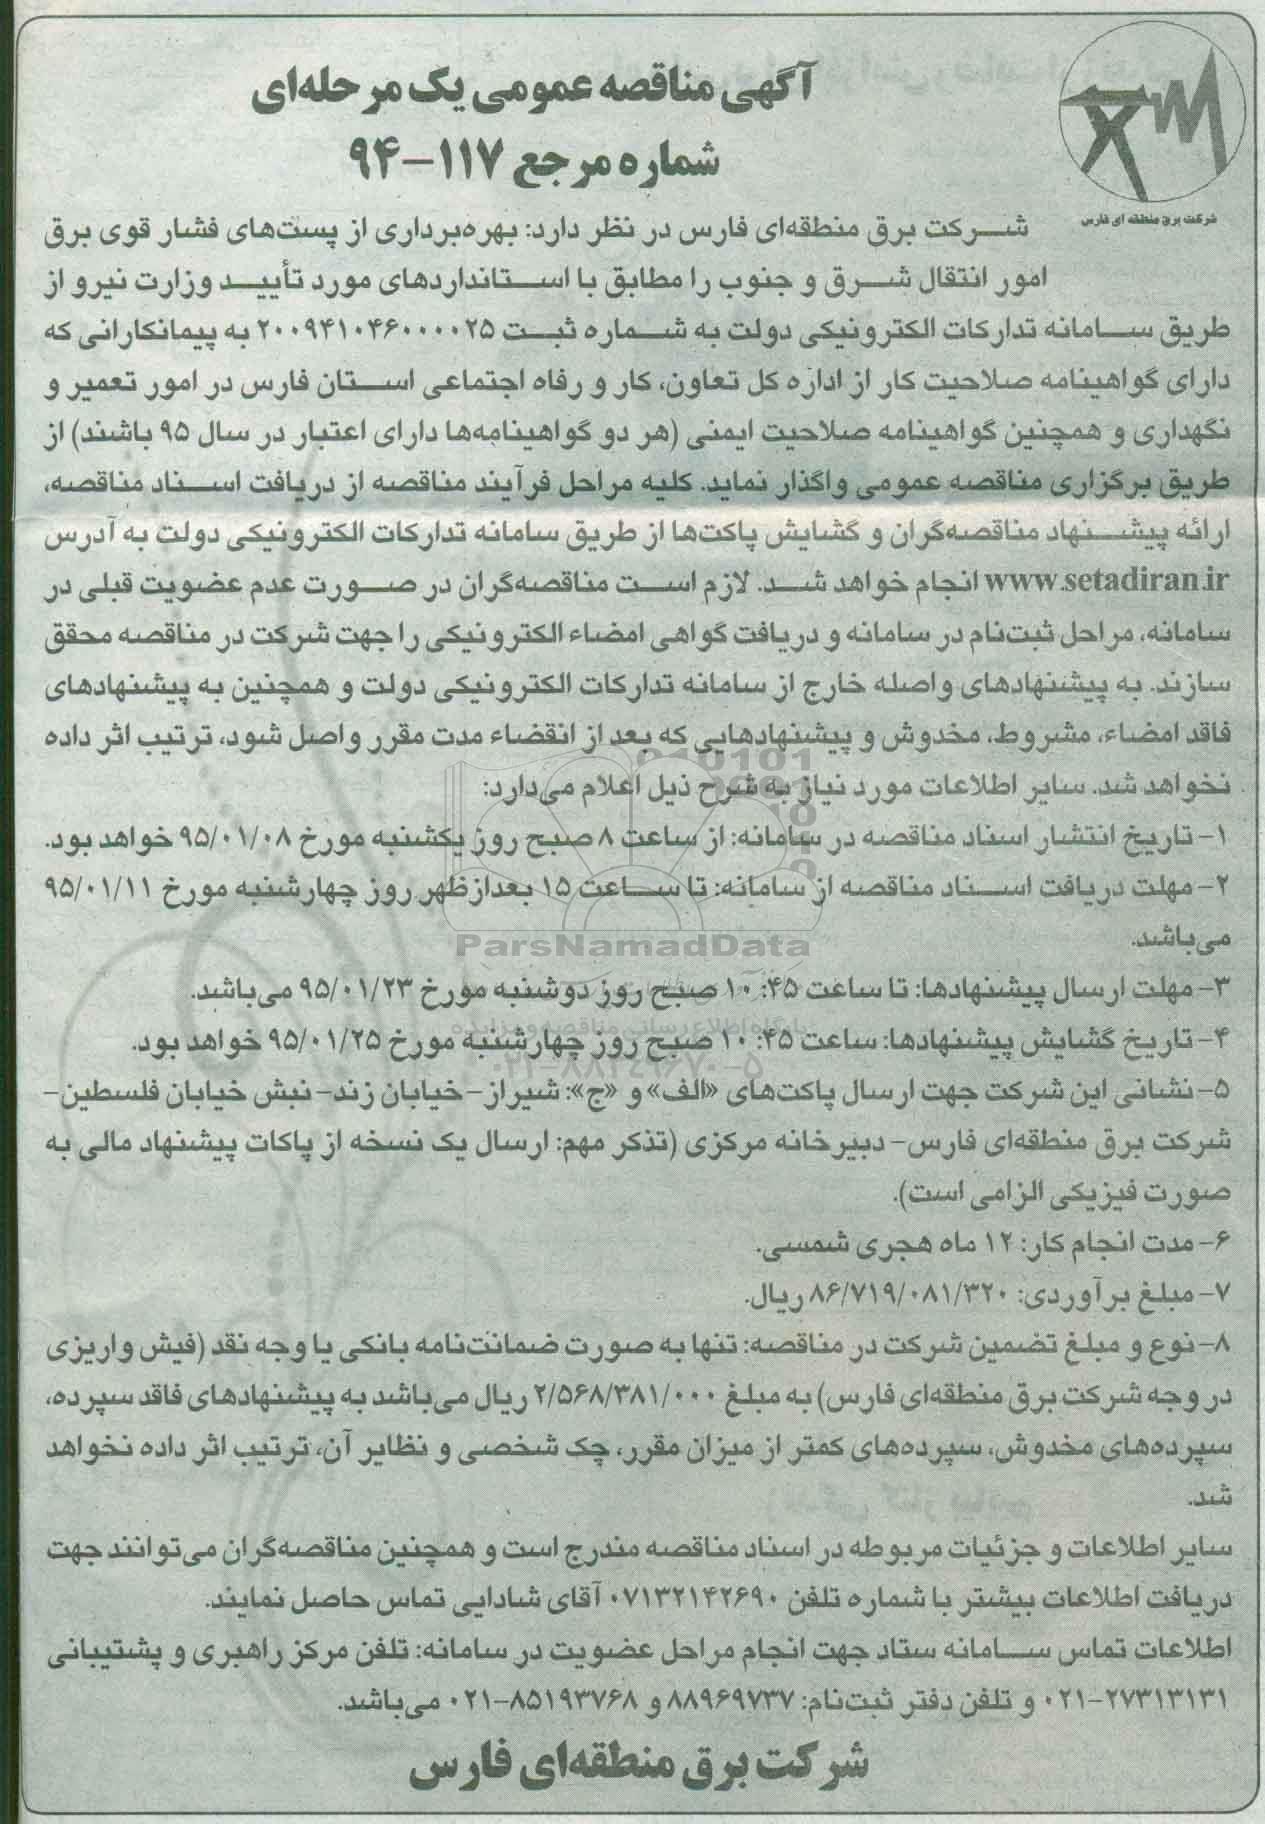 آگهی مناقصه عمومی یک مرحله‌ای
شماره مرجع ۱۱۷-۹۴
شرکت برق منطقه ای فارس
شرکت برق منطقه‌ای فارس در نظر دارد: بهره‌برداری از پست‌های فشار قوی برق
امور انتقال شرق و جنوب را مطابق با استانداردهای مورد تأیید وزارت نیرو از
طریق سامانه تدارکات الکترونیکی دولت به شماره ثبت ۲۰۰۹۴۱۰۴۶۰۰۰۰۲۵ به پیمانکارانی که
دارای گواهینامه صلاحیت کار از اداره کل تعاون، کار و رفاه اجتماعی استان فارس در امور تعمیر و
نگهداری و همچنین گواهینامه صلاحیت ایمنی (هر دو گواهینامه‌ها دارای اعتبار در سال ۹۵ باشند) از
طریق برگزاری مناقصه عمومی واگذار نماید. کلیه مراحل فرآیند مناقصه از دریافت اسناد مناقصه،
ارائه پیشنهاد مناقصه‌گران و گشایش پاکت‌ها از طریق سامانه تدارکات الکترونیکی دولت به آدرس
www.setadiran.ir انجام خواهد شد. لازم است مناقصه‌گران در صورت عدم عضویت قبلی در
سامانه، مراحل ثبت‌نام در سامانه و دریافت گواهی امضاء الکترونیکی را جهت شرکت در مناقصه محقق
سازند. به پیشنهادهای واصله خارج از سامانه تدارکات الکترونیکی دولت و همچنین به پیشنهادهای
فاقد امضاء، مشروط، مخدوش و پیشنهادهایی که بعد از انقضاء مدت مقرر واصل شود، ترتیب اثر داده
نخواهد شد. سایر اطلاعات مورد نیاز به شرح ذیل اعلام می‌دارد:
۱- تاریخ انتشار اسناد مناقصه در سامانه: از ساعت ۸ صبح روز یکشنبه مورخ ۹۵/۰۱/۰۸ خواهد بود.
۲- مهلت دریافت اسناد مناقصه از سامانه: تا ساعت ۱۵ بعدازظهر روز چهارشنبه مورخ ۹۵/۰۱/۱۱
می‌باشد.
ParsNamadData
۳- مهلت ارسال پیشنهادها: تا ساعت ۱۰:۴۵ صبح روز دوشنبه مورخ ۹۵/۰۱/۲۳ می‌باشد.
پایگاه اطلاع رسانی مناقصه و مزایده
۴- تاریخ گشایش پیشنهادها: ساعت ۱۰:۴۵ صبح روز چهارشنبه مورخ ۹۵/۰۱/۲۵ خواهد بود.
۰۲۱-۸۸۳۴۹۶۷۰-۵
۵- نشانی این شرکت جهت ارسال پاکت‌های «الف» و «ج»: شیراز- خیابان زند- نبش خیابان فلسطین-
شرکت برق منطقه‌ای فارس- دبیرخانه مرکزی (تذکر مهم: ارسال یک نسخه از پاکات پیشنهاد مالی به
صورت فیزیکی الزامی است).
۶- مدت انجام کار: ۱۲ ماه هجری شمسی.
۷- مبلغ برآوردی: ۸۶/۷۱۹/۰۸۱/۳۲۰ ریال.
۸- نوع و مبلغ تضمین شرکت در مناقصه: تنها به صورت ضمانت‌نامه بانکی یا وجه نقد (فیش واریزی
در وجه شرکت برق منطقه‌ای فارس) به مبلغ ۲/۵۶۸/۳۸۱/۰۰۰ ریال می‌باشد به پیشنهادهای فاقد سپرده،
سپرده‌های مخدوش، سپرده‌های کمتر از میزان مقرر، چک شخصی و نظایر آن، ترتیب اثر داده نخواهد
شد.
سایر اطلاعات و جزئیات مربوطه در اسناد مناقصه مندرج است و همچنین مناقصه‌گران می‌توانند جهت
دریافت اطلاعات بیشتر با شماره تلفن ۰۷۱۳۲۱۴۲۶۹۰ آقای شادابی تماس حاصل نمایند.
اطلاعات تماس سامانه ستاد جهت انجام مراحل عضویت در سامانه: تلفن مرکز راهبری و پشتیبانی
۰۲۱-۲۷۳۱۳۱۳۱ و تلفن دفتر ثبت‌نام: ۸۸۹۶۹۷۳۷ و ۰۲۱-۸۵۱۹۳۷۶۸ می‌باشد.
شرکت برق منطقه‌ای فارس